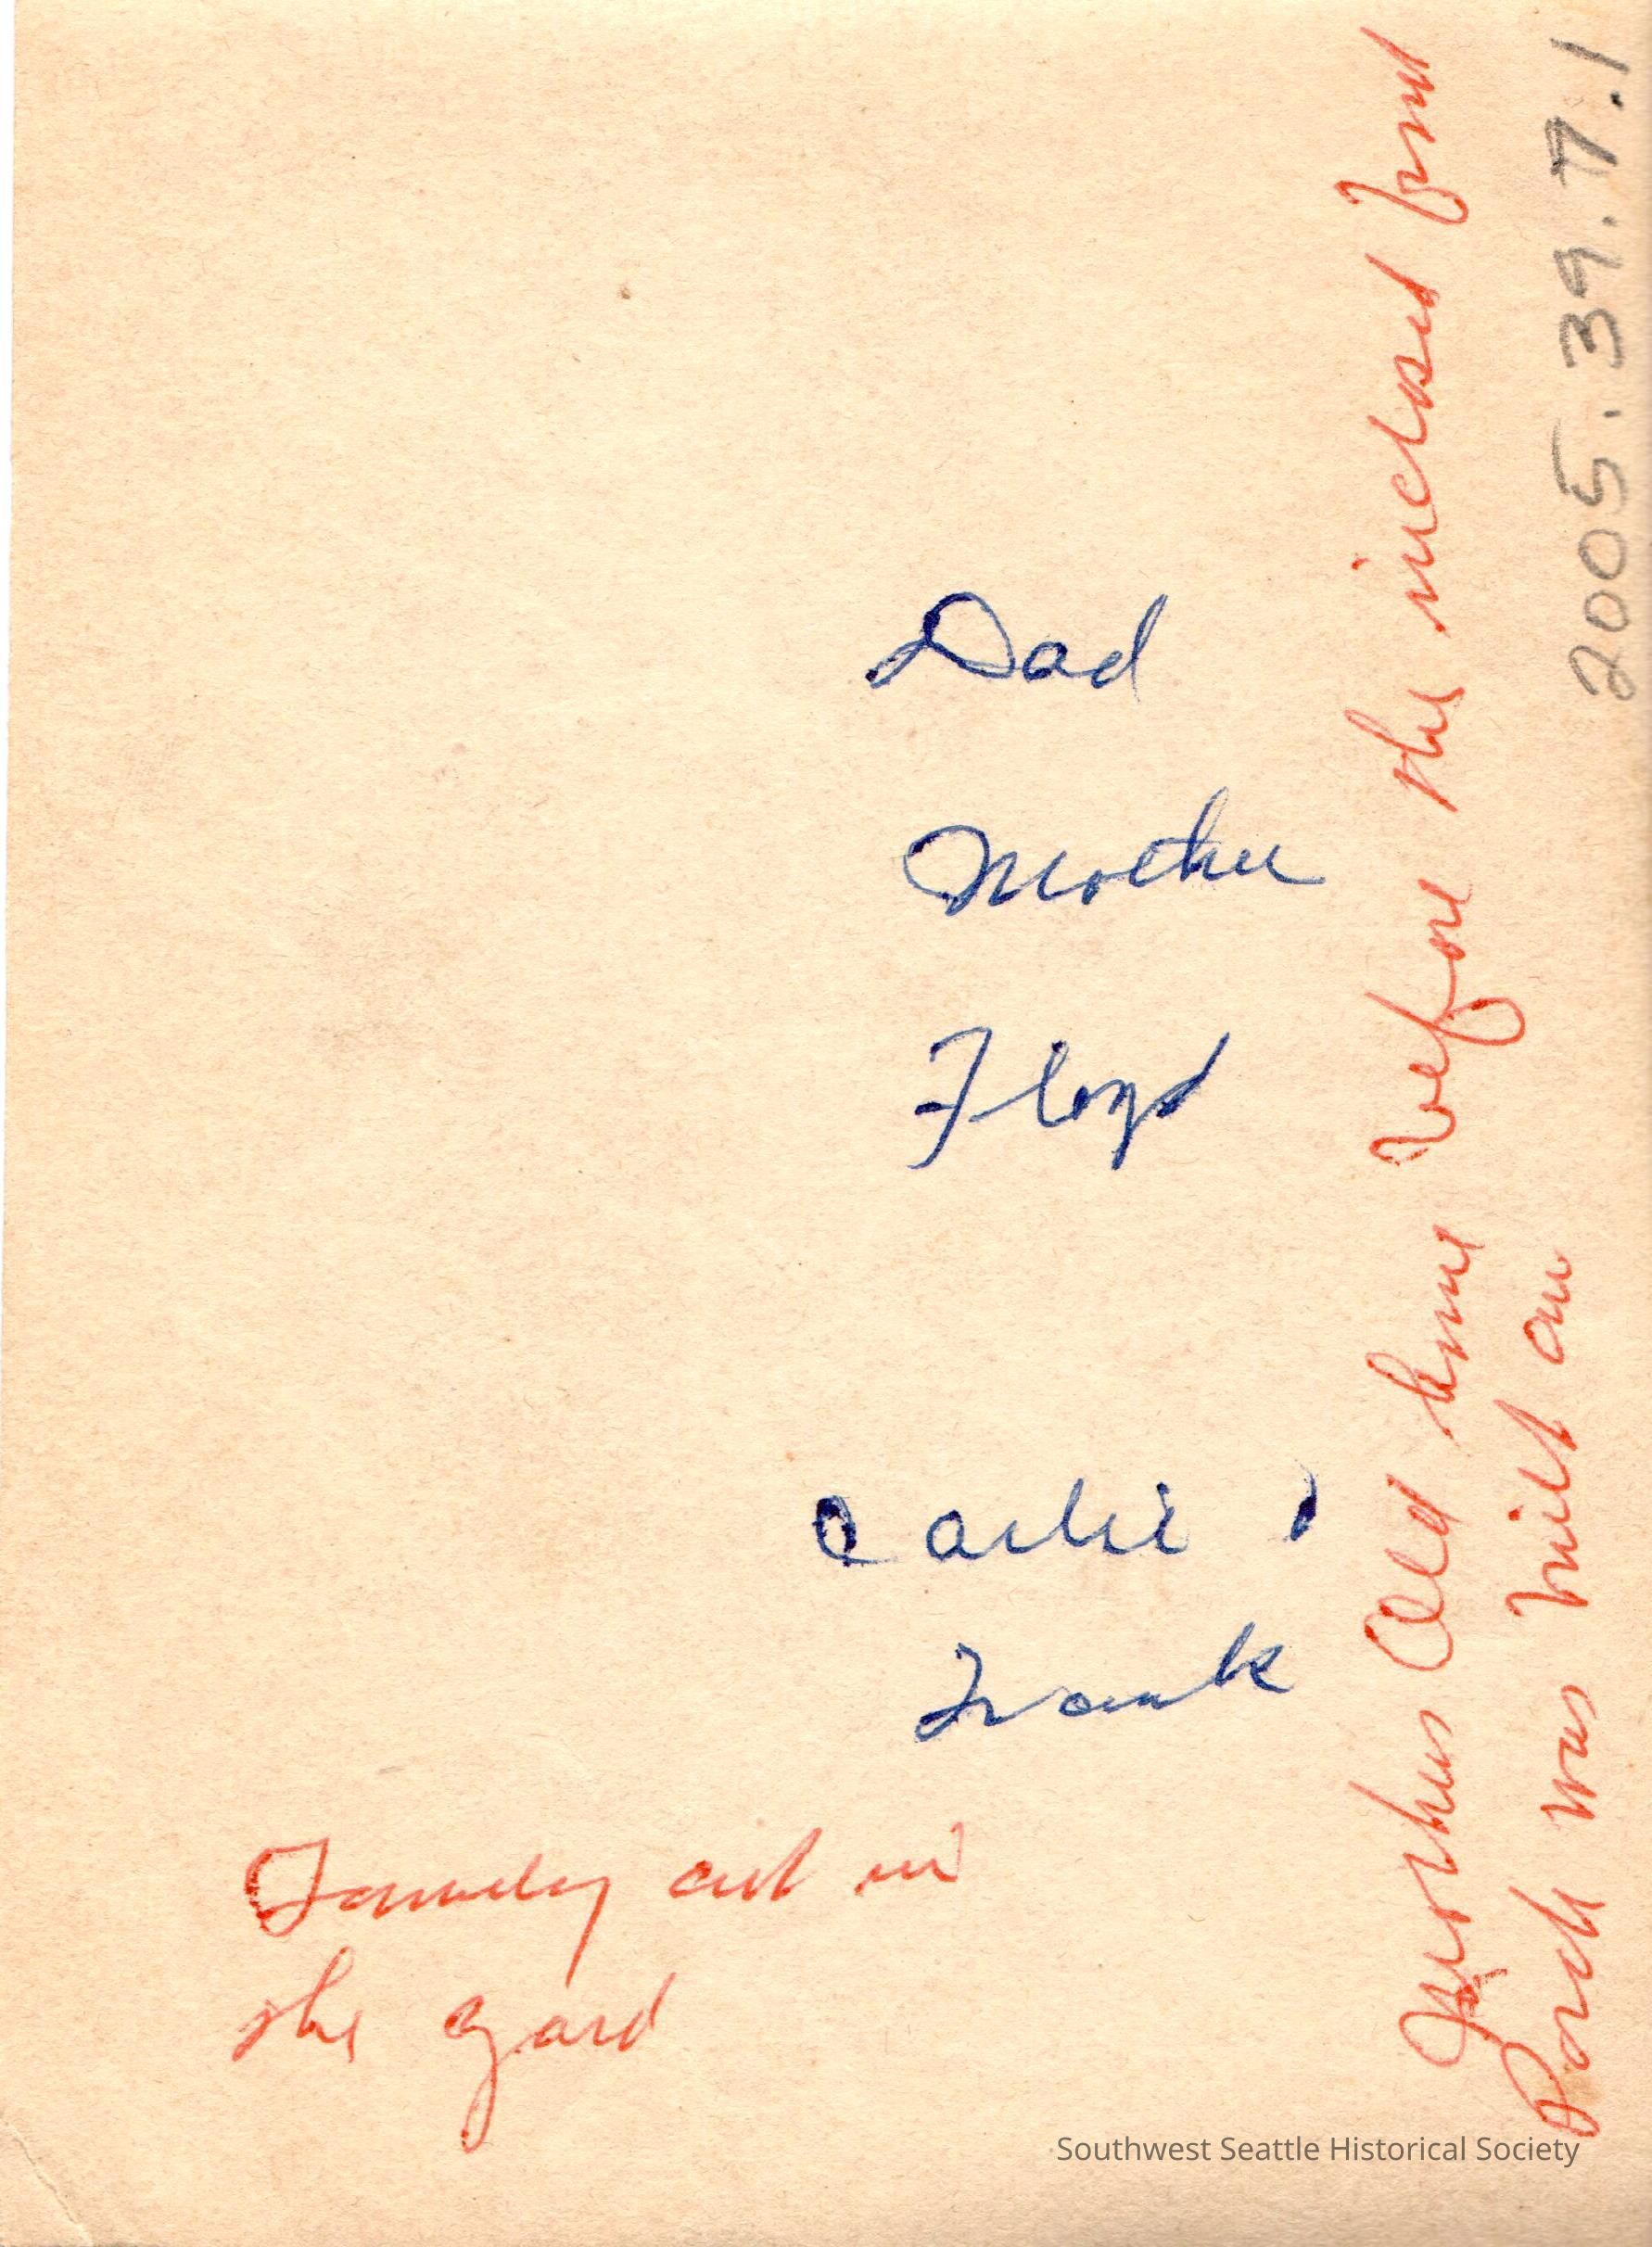 Dad
Mother
Floyd
Carlie
Frank
Family out in
the yard
Old home before the inclosed front
Porch was built on
2005.39.7.1
Southwest Seattle Historical Society